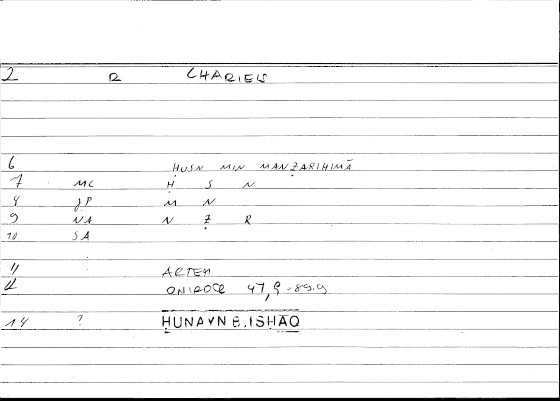 2 R CHARIEIS
6 ḤUSN MIN MANẒARIHIMĀ
7 MC Ḥ S N
8 JP M N
9 NA N Ẓ R
10 SA
11 ARTEM
12 ONIROCR 47,9-89.9
14 ? ḤUNAYN B. ISḤĀQ